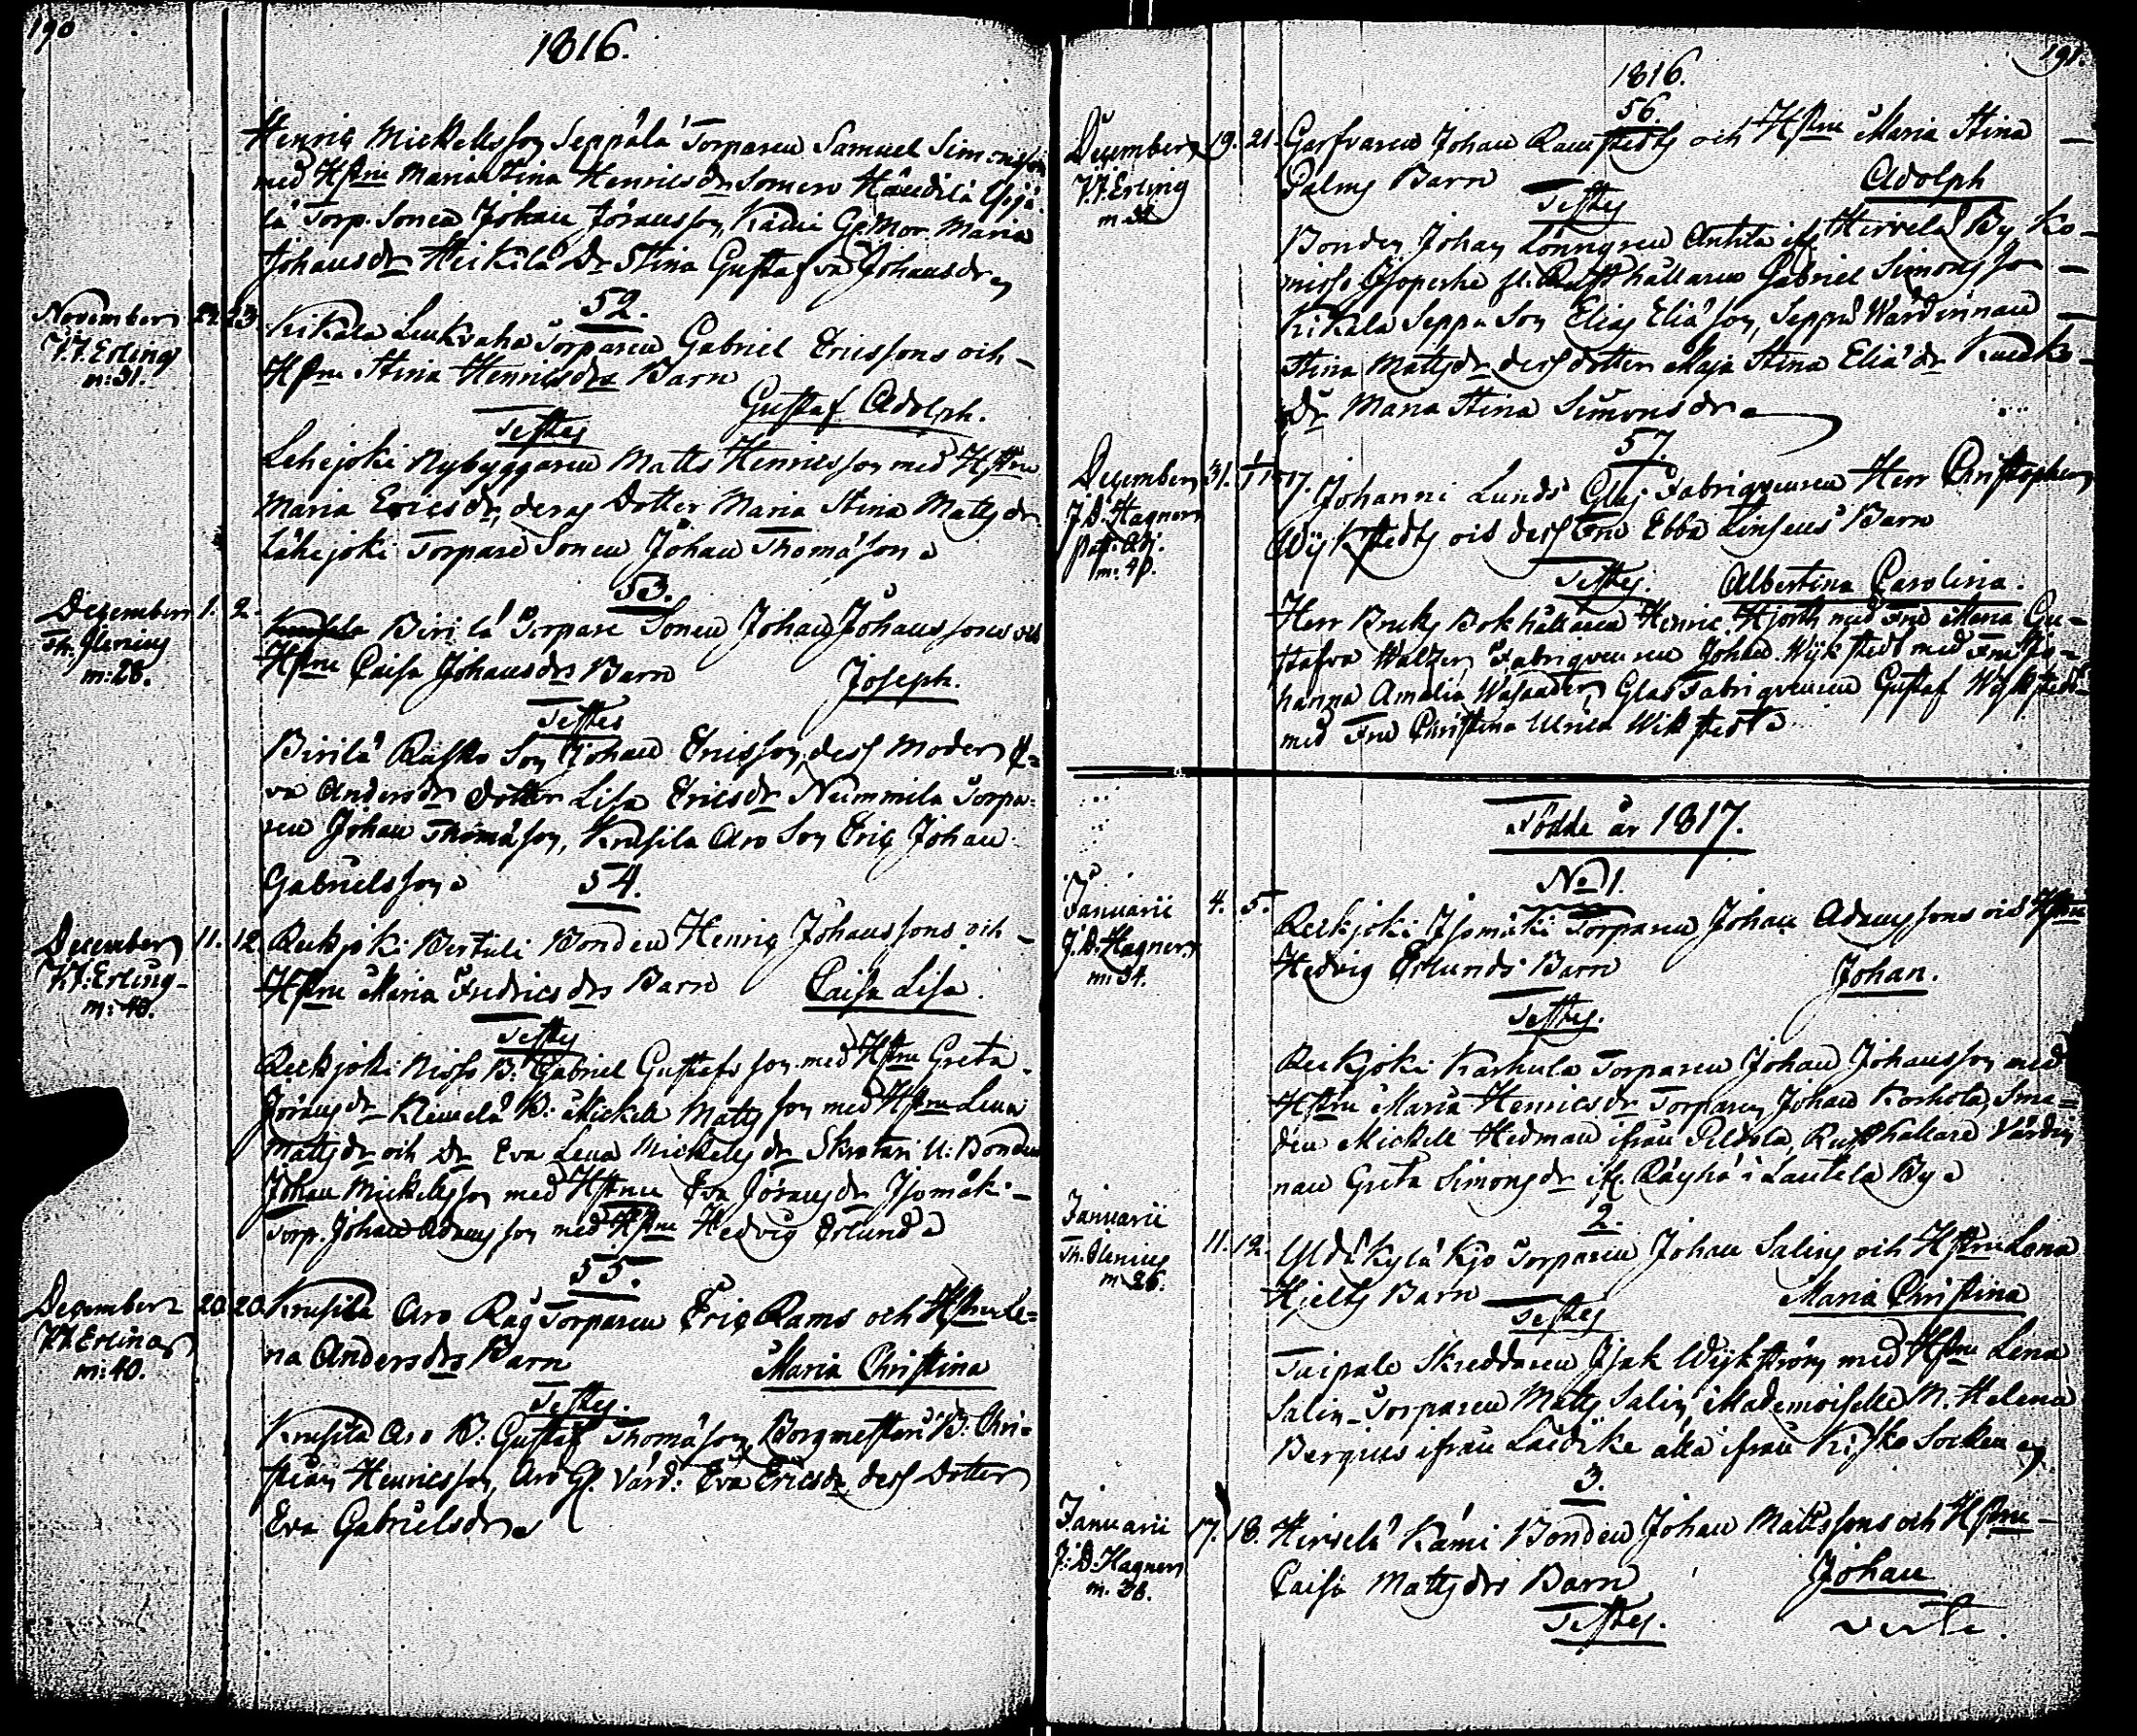 190
1816.
Henric Mickelsson Seppälä Torparen Samuel Simonsson
med Hstru Maria Stina Henricsdr Somero Häntilä
lä Torp. Sonen Johan Göransson, Kämi Gl. Mor. Maria
Johansdr Heikilä Dr Stina Gustafva Johansdr
52.
November 22. 23. Kikala Torparen Gabriel Ericssons och
V.F. Erling
m: 31.
Hstru Stina Henricsdrs Barn
Gustaf Adolph.
Testes
Lehejoki Nybyggaren Matts Henricsson med Hstru
Maria Ericsdr, deras Dotter Maria Stina Mattsdr
Lähejoki Torpare Sonen Johan Thomasson
53.
December 1. 2. Birilä Torpare Sonen Johan Johanssons och
Th. Ilenius
m: 28.
Hstru Caisa Johansdrs Barn Joseph.
Testes
Birilä Rusko Son Johan Ericsson, dess Moder E-
va Andersdr Dotter Lisa Ericsdr Nummila Torpa-
ren Johan Thomasson, Krusila Aro Son Eric Johan
Gabrielsson
54.
December 11. 12. Reekjoki Bertuli Bonden Henric Johanssons och
V.F. Erling
m: 40.
Hstru Maria Fredricsdrs Barn Caisa Lisa.
Testes
Reekjoki Nisso B: Gabriel Gustafsson med Hstru Greta
Göransdr Klemelä B: Mickell Mattsson med Hstru Lena
Mattsdr och Dr Eva Lena Mickelsdr Skratari U: Bonden
Johan Mickelsson med Hstru Eva Göransdr Isomäki
Torp. Johan Adamsson med Hstru Hedvig Erlund
55.
December 20. 20. Krusila Aro Rag Torparen Eric Rams och Hstru Le-
V.F. Erling
m: 40.
na Andersdrs Barn Maria Christina
Testes.
Krusila Aro B. Gustaf Thomasson, Borgmestari B: Chri-
stian Henricsson, Aro Gl. Värd: Eva Ericsdr dess Dotter
Eva Gabrielsdr
191.
1816.
56.
December 19. 21. Garfvaren Johan Ramstedts och Hstru Maria Stina
V.F. Erling
Palms Barn Adolph
Testes
Bonden Johan Lönngren Antila ifr. Hirvelä By Ko-
Gabriel Simonsson
Kikela Seppä Son Elias Eliasson, Seppä Wärdinnan
Stina Mattsdr dess dotter Maja Stina Eliædr
Dr Maria Stina Simonsdr
57.
December 31. 1/1 1817. Johanni Lunds Glas Fabriqueuren Herr Christopher
J.D. Hagner
Past. Adj.
m: 40.
Wykstedts och dess Fru Ebba Linseens Barn
Testes. Albertina Carolina.
Herr Bruks Bokhållaren Henric Hjorth med Fru Maria Gu-
stafva Walzer, Fabriqueuren Johan Wykstedt med Fru Jo-
hanna Amalia Wasander, Glas Fabriqueuren Gustaf Wykstedt
med Fru Christina Ulrica Wikstedt
Födde år 1817.
No 1.
Januarii 4. 5. Reekjoki Isomäki Torparen Johan Adamssons och Hstru
J.D. Hagner
m: 34.
Hedvig Erlunds Barn Johan.
Testes.
Reekjoki Karhula Torparen Johan Johansson med
Hstru Maria Henricsdr Torparen Johan Korhola, Sme-
den Mickell Hedman ifrån Peldola, Rusthållare Värdin-
nan Greta Simonsdr ifr. Räyhä i Lautela By
2.
Januarii 11. 12. Yldäkylä Kjo Torparen Johan Salins och Hstru Lena
Th. Ilenius
m 26.
Hjelts Barn Maria Christina
Testes
Taipale Skreddaren Isak Wykström med Hstru Lena
Salin Torparen Matts Salin, Mademoiselle M. Helena
Bergius ifrån Laidike alla ifrån Kisko Socken
3.
Januarii 17. 18. Hirvelä Kämi Bonden Johan Mattssons och Hstru
J.D. Hagner
m. 36.
Caisa Mattsdrs Barn Johan
Testes.
verte.